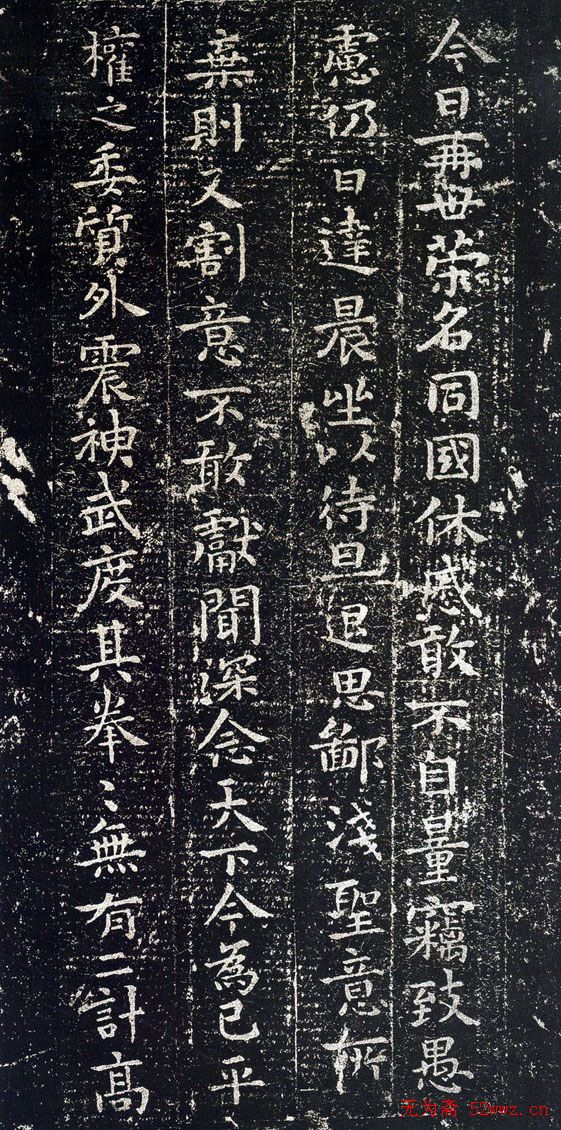 今日再世荣名同國休慼敢不自量竊致愚
慮仍日達晨坐以待旦退思鄙淺聖意所
棄則又割意不敢獻聞深念天下今為已平
權之委質外震神武度其拳〻無有二計高
无为斋 52wwz.cn